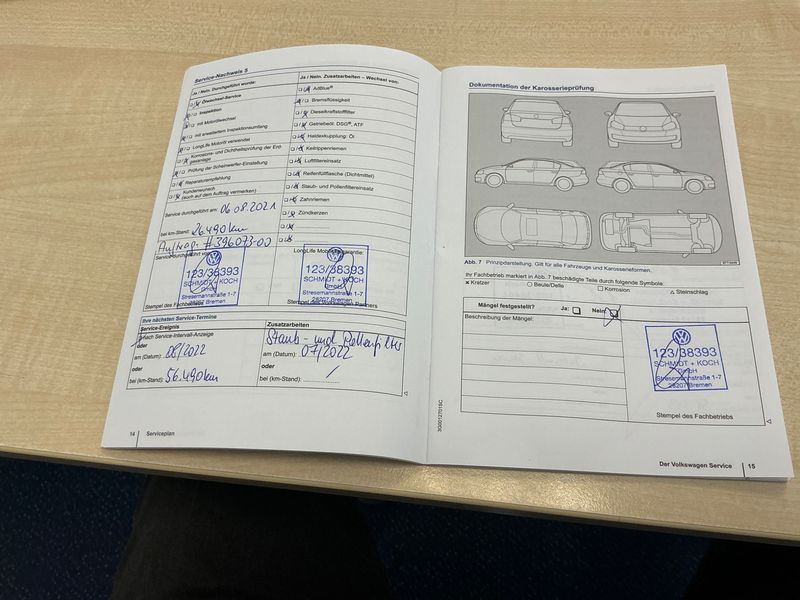 Service-Nachweis 5
Ja / Nein. Durchgeführt wurde:
Ölwechsel-Service
Inspektion
mit Motorölwechsel
mit erweitertem Inspektionsumfang
LongLife Motoröl verwendet
Korrosions- und Dichtheitsprüfung der Erdgasanlage
Prüfung der Scheinwerfer-Einstellung
Reparaturempfehlung
Kundenwunsch
(auch auf dem Auftrag vermerken)
Service durchgeführt am: 06.08.2021
bei km-Stand: 26.490 km
#396073-00
Service durchgeführt von:
123/38393
SCHMIDT + KOCH
GmbH
Stresemannstraße 1-7
28207 Bremen
Stempel des
Ja / Nein. Zusatzarbeiten – Wechsel von:
AdBlue®
Bremsflüssigkeit
Dieselkraftstofffilter
Getriebeöl: DSG®, ATF
Haldexkupplung: Öl
Keilrippenriemen
Luftfiltereinsatz
Reifenfüllflasche (Dichtmittel)
Staub- und Pollenfiltereinsatz
Zahnriemen
Zündkerzen
LongLife
123/38393
SCHMIDT + KOCH
GmbH
Stresemannstraße 1-7
28207 Bremen
Stempel des Partners
Ihre nächsten Service-Termine
Service-Ereignis
Service-Intervall-Anzeige
oder
am (Datum): 08/2022
oder
bei (km-Stand): 56.490 km
Zusatzarbeiten
Staub- und Pollenfilter
am (Datum): 07/2022
oder
bei (km-Stand):
14 Serviceplan
Dokumentation der Karosserieprüfung
Abb. 7 Prinzipdarstellung. Gilt für alle Fahrzeuge und Karosserieformen.
Ihr Fachbetrieb markiert in Abb. 7 beschädigte Teile durch folgende Symbole:
x Kratzer ○ Beule/Delle □ Korrosion △ Steinschlag
Mängel festgestellt? Ja: Nein:
Beschreibung der Mängel:
123/38393
SCHMIDT + KOCH
GmbH
Stresemannstraße 1-7
28207 Bremen
Stempel des Fachbetriebs
3G0012701SC
Der Volkswagen Service 15